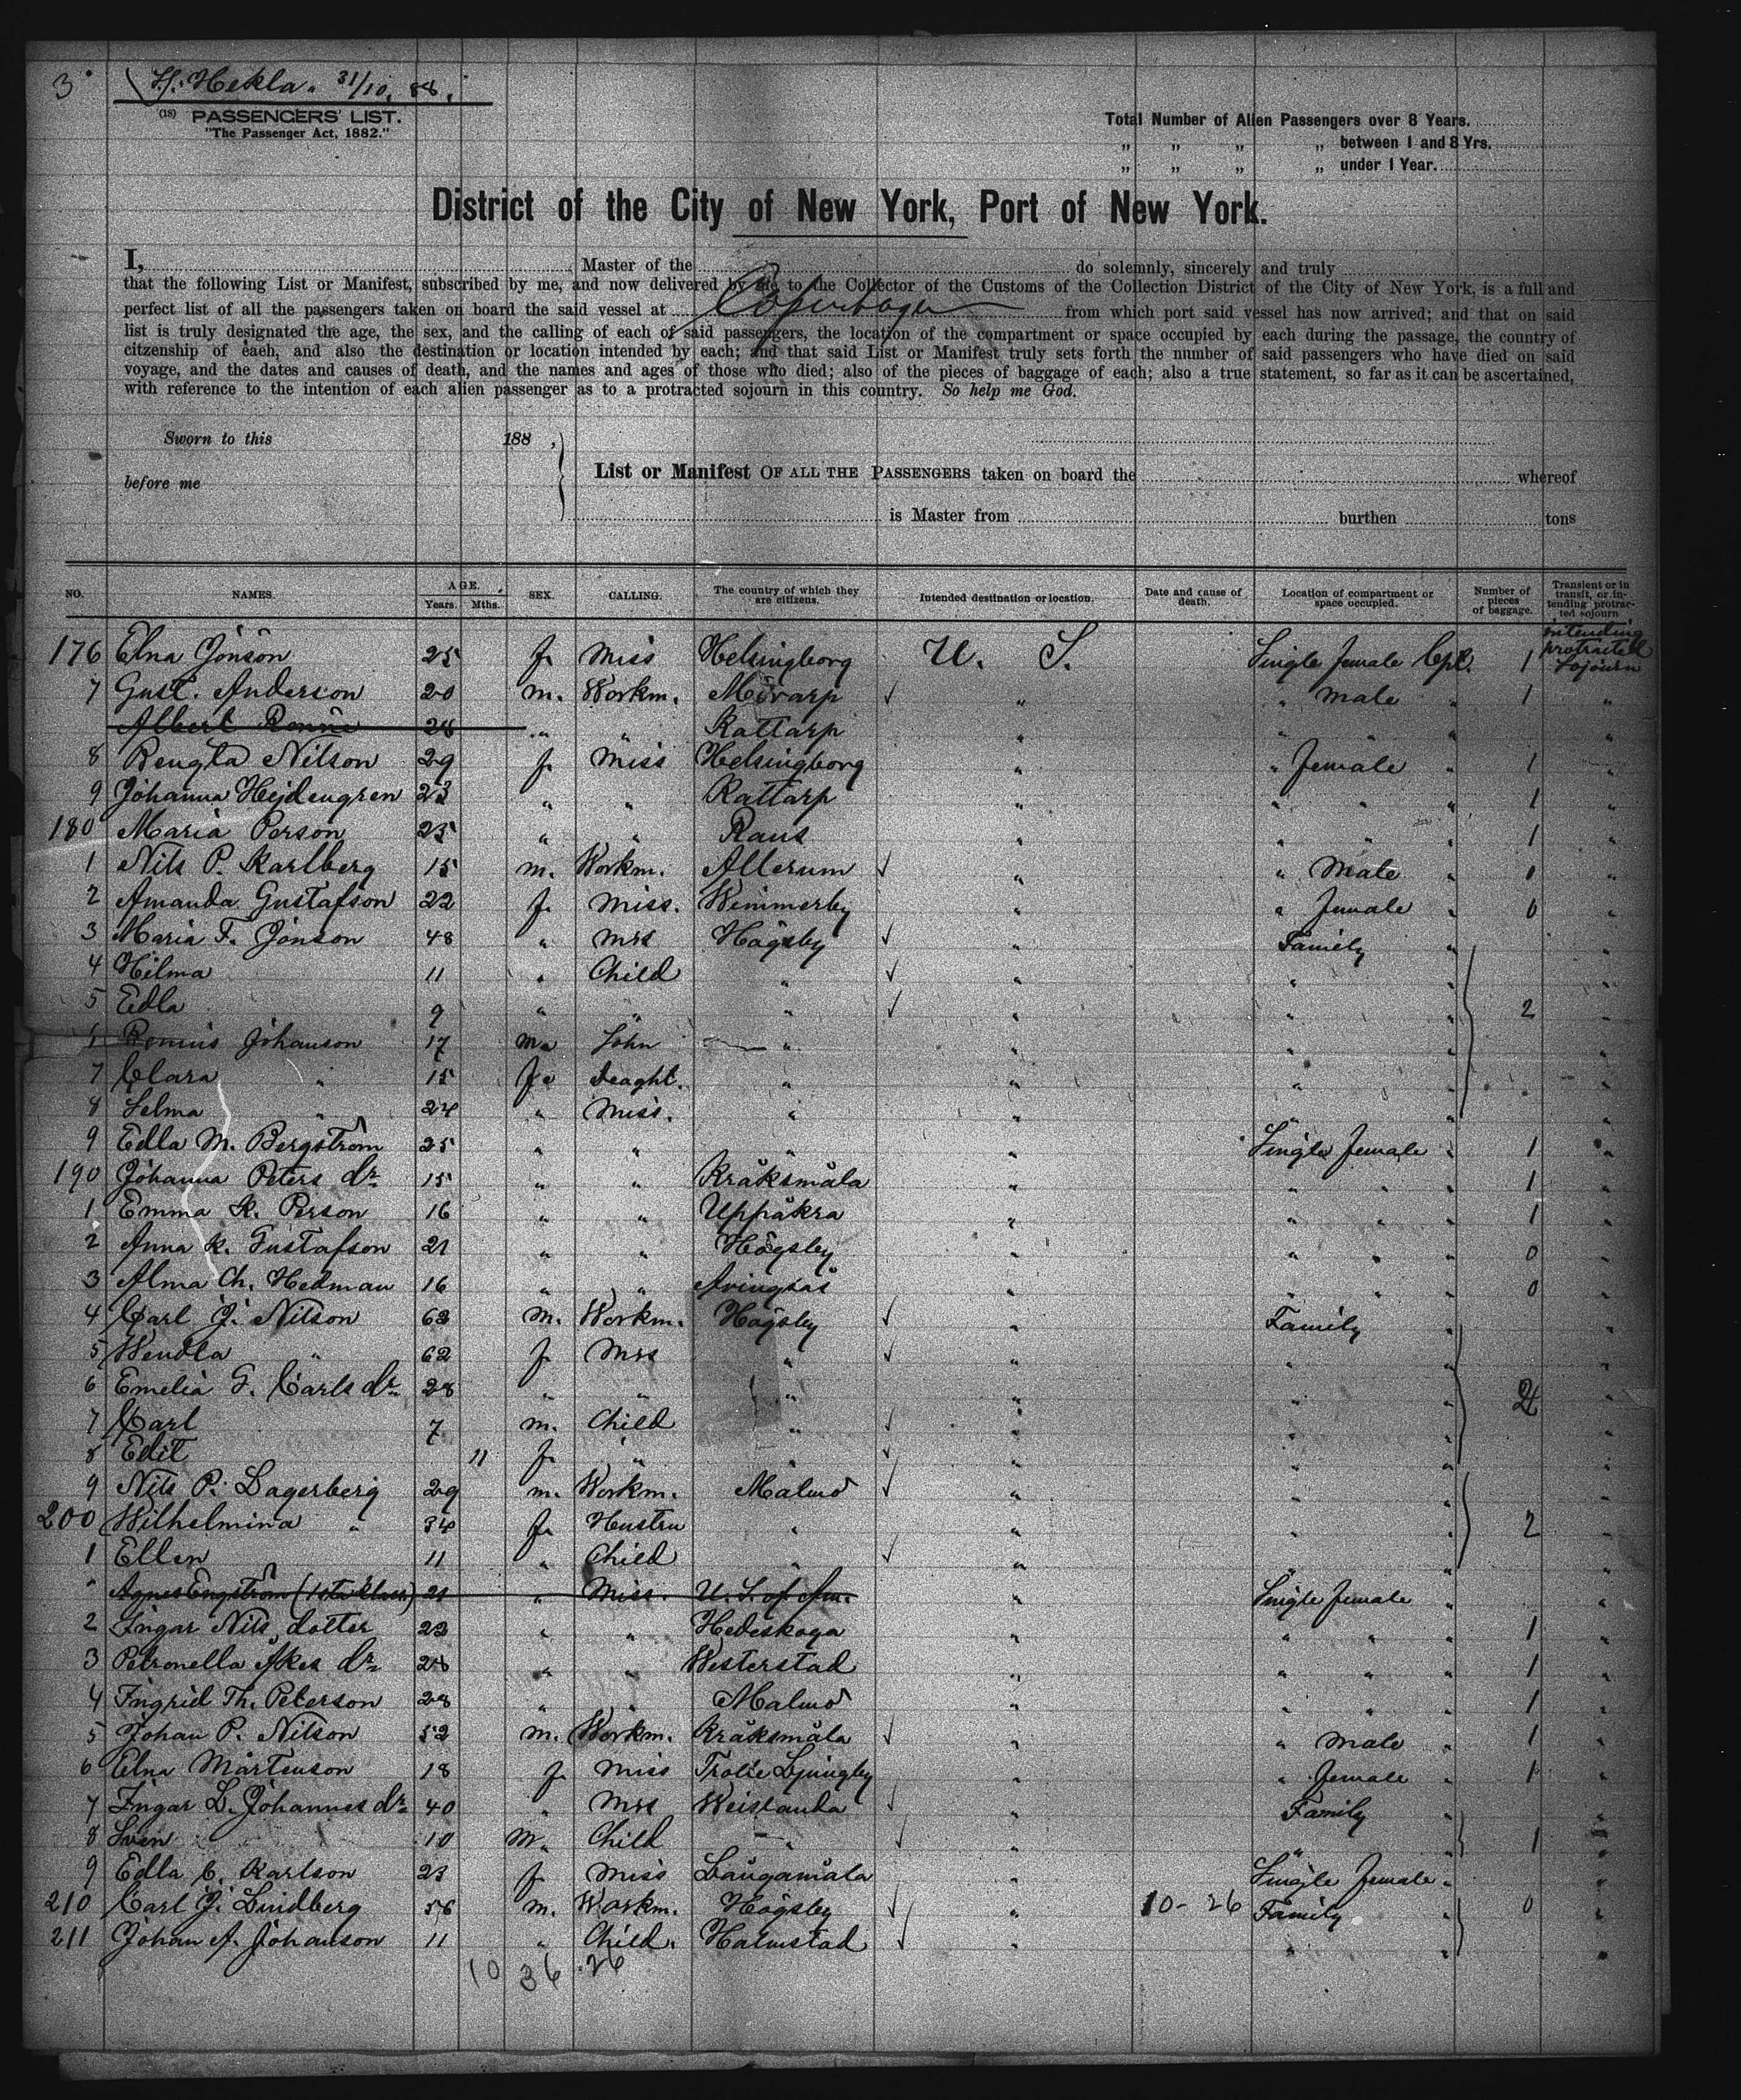 3
H: Hekla. 31/10. 88.
(18) PASSENGERS' LIST.
"The Passenger Act, 1882."
Total Number of Alien Passengers over 8 Years.
„ „ „ „ between 1 and 8 Yrs.
„ „ „ „ under 1 Year.
District of the City of New York, Port of New York.
I, Master of the do solemnly, sincerely and truly
that the following List or Manifest, subscribed by me, and now delivered by me to the Collector of the Customs of the Collection District of the City of New York, is a full and
perfect list of all the passengers taken on board the said vessel at Copenhagen from which port said vessel has now arrived; and that on said
list is truly designated the age, the sex, and the calling of each of said passengers, the location of the compartment or space occupied by each during the passage, the country of
citzenship of eaeh, and also the destination or location intended by each; and that said List or Manifest truly sets forth the number of said passengers who have died on said
voyage, and the dates and causes of death, and the names and ages of those who died; also of the pieces of baggage of each; also a true statement, so far as it can be ascertained,
with reference to the intention of each alien passenger as to a protracted sojourn in this country. So help me God.
Sworn to this 188 ,
before me
List or Manifest OF ALL THE PASSENGERS taken on board the whereof
is Master from burthen tons
NO. NAMES. AGE. Years. Mths. SEX. CALLING. The country of which they are citizens. Intended destination or location. Date and cause of death. Location of compartment or space occupied. Number of pieces of baggage. Transient or in transit, or intending protracted sojourn
176 Elna Jönson 25 f. Miss Helsingborg U. S. Single female Cpt. 1 intending protracted sojourn
7 Gust. Anderson 20 m. Workm. Mörarp ✓ " " male " 1 "
Albert 28 " " Kattarp " " " " "
8 Bengta Nilson 29 f. Miss Helsingborg " " female " 1 "
9 Johanna Hejdengren 23 " " Kattarp " " " " 1 "
180 Maria Person 25 " " Raus " " " " 1 "
1 Nils P. Karlberg 15 m. Workm. Allerum ✓ " " Male " 1 "
2 Amanda Gustafson 22 f. Miss. Wimmerby " " female " 0 "
3 Maria F. Jonson 48 " Mrs Högsby ✓ " Family " "
4 Hilma 11 " Child " ✓ " " " "
5 Edla 9 " " " ✓ " " " 2 "
6 Johanson 17 m. John " " " " "
7 Clara " 15 fe Daught. " " " " "
8 Selma " 24 " Miss. " " " " "
9 Edla M. Bergström 25 " " " " Single female " 1 "
190 Johanna Peters dr 15 " " Kråksmåla " " " " 1 "
1 Emma K. Person 16 " " Uppåkra " " " " 1 "
2 Anna K. Gustafson 21 " " Högsby " " " " 0 "
3 Alma Ch. Hedman 16 " " " " " " 0 "
4 Carl J. Nilson 62 m. Workm. Högsby ✓ " Family " "
5 Wendla " 62 f. Mrs " ✓ " " " "
6 Emelia G. Carls dr 28 " " " " " " "
7 Carl 7 m. Child " ✓ " " " "
8 Edit 11 f. " " ✓ " " " "
9 Nils P. Lagerberg 29 m. Workm. Malmö ✓ " " " "
200 Wilhelmina " 34 f. Hustru " " " " 2 "
1 Ellen 11 " Child " ✓ " " " "
Agnes Engström (1ste klass) 21 " Miss. U. S. of Am. " Single female " "
2 Ingar Nils dotter 23 " " Hedeskoga " " " 1 "
3 Petronella Åkes dr 28 " " Westerstad " " " 1 "
4 Ingrid Th. Peterson 28 " " Malmö " " " 1 "
5 Johan P. Nilson 52 m. Workm. Kråksmåla ✓ " " Male " 1 "
6 Elna Mårtenson 18 f. Miss Trolle Ljungby " " female " 1 "
7 Ingar L. Johannes dr 40 " Mrs Weislanda ✓ " Family "
8 Sven 10 m. Child " ✓ " " " 1 "
9 Edla C. Karlson 23 f. Miss Långamåla " Single female " "
210 Carl J. Lindberg 56 m. Workm. Högsby ✓ " 10-26 Family " 0 "
211 Johan A. Johanson 11 " Child. Halmstad ✓ " " " "
10 36 26